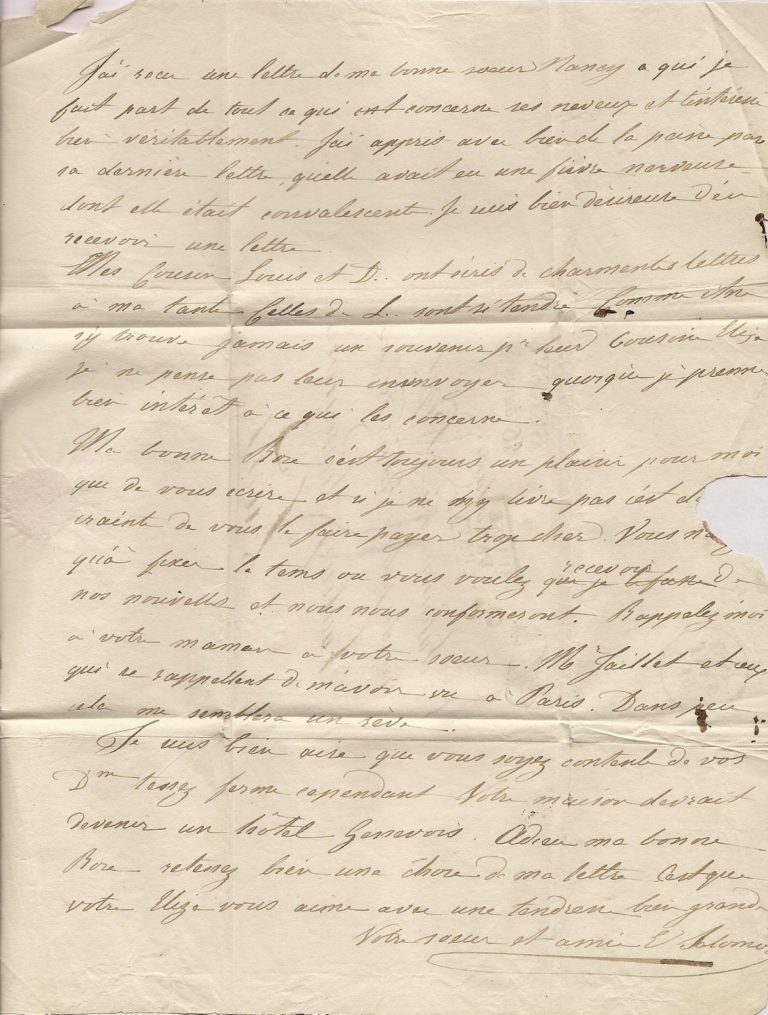 J'ai recu une lettre de ma bonne soeur Nancy a qui je
fait part de tout ce qui concerne ses neveux et
bien véritablement. J'ai appris avec bien de la peine par
sa dernière lettre quelle avait eu une fièvre nerveuse
dont elle était convalescente. Je suis bien désireuse d'en
recevoir une lettre.
Mes Cousin Louis et D.. ont écris de charmentes lettres
à ma tante Celles de L.. sont si tendre. Comme
s'y trouve jamais un souvenir pr leur Cousine Elize
je ne pense pas leur envoyer quoique j'y prenne
bien intérêt à ce qui les concerne.
Ma bonne Rose c'est toujours un plaisir pour moi
que de vous écrire et si je ne m'y livre pas c'est
crainte de vous le faire payer trop cher. Vous
qu'à fixer le tems ou vous voulez recevoir de
nos nouvelles et nous nous conformeront. Rappelez moi
à votre maman a votre soeur. Mr Jaillet et ceux
qui se rappellent de m'avoir vu à Paris. Dans peu
cela me semblera un rève.
Je suis bien aise que vous soyez contente de vos
Dm tenez ferme cependant Votre maison devrait
devenir un hôtel Genevois. Adieu ma bonne
Rose retenez bien une chose de ma lettre C'est que
votre Elize vous aime avec une tendresse bien grande
Votre soeur et amie E